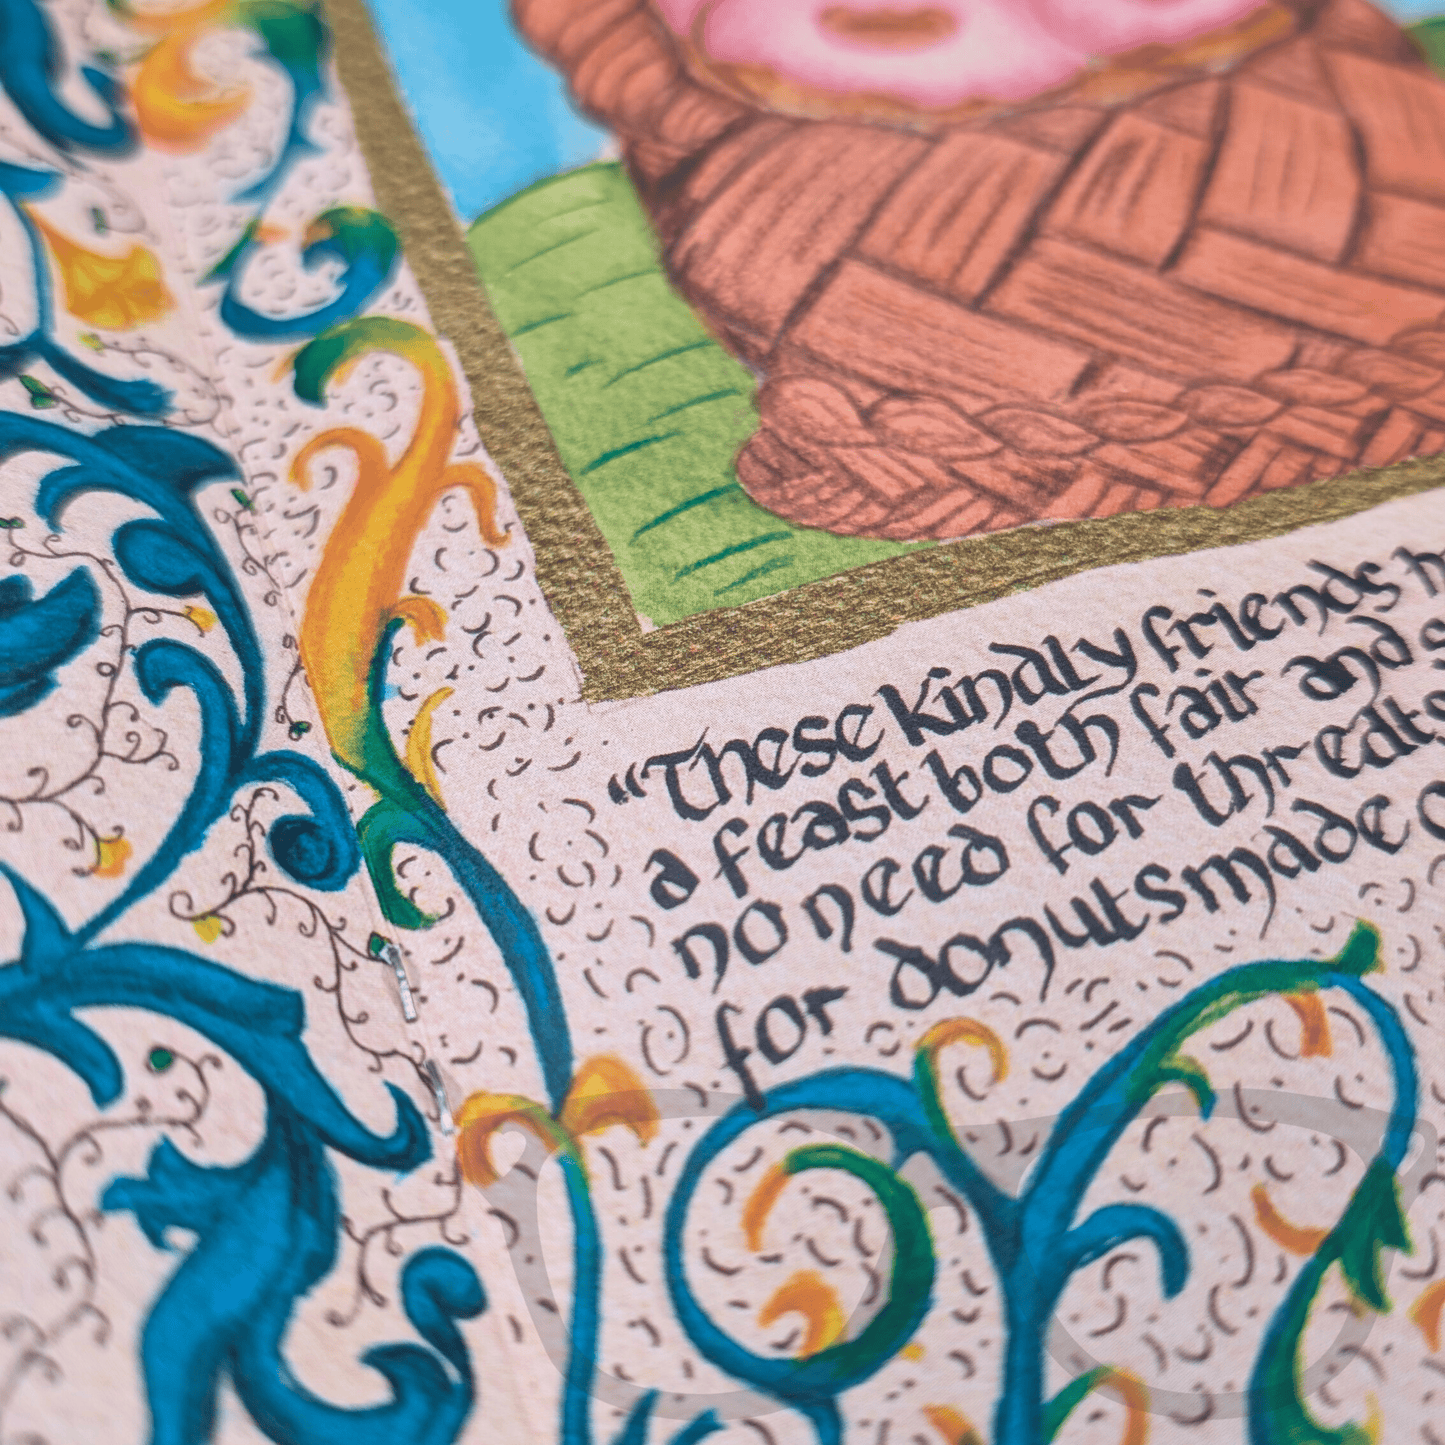 “These kindly friends
a feast both fair and
no need for thredts
for donuts made